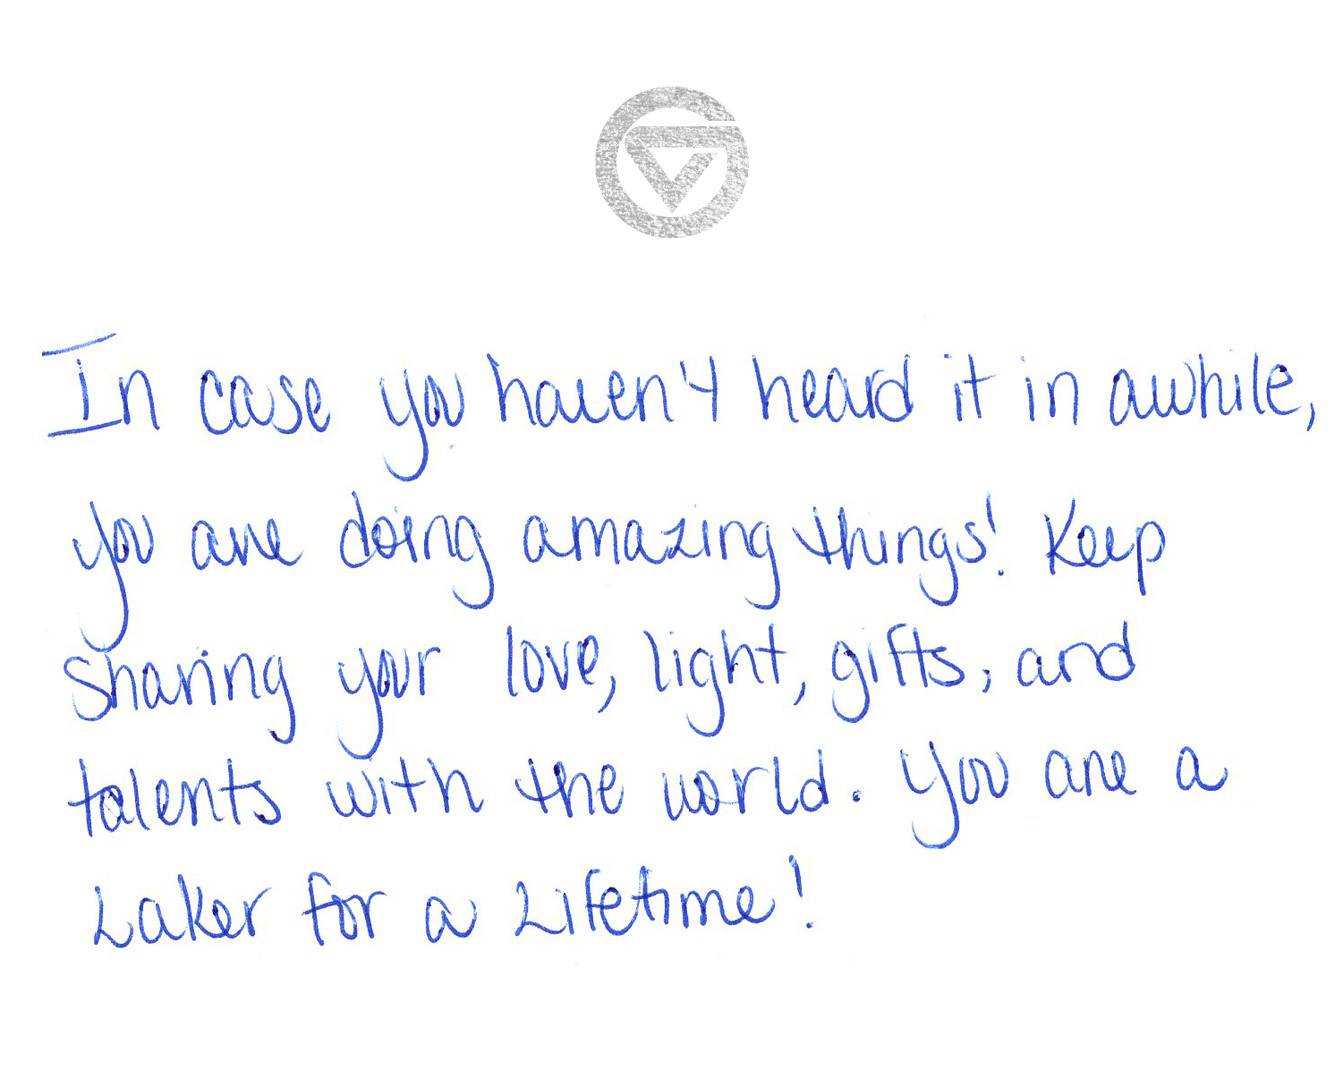 In case you haven't heard it in awhile,
you are doing amazing things! Keep
sharing your love, light, gifts, and
talents with the world. You are a
Laker for a Lifetime!